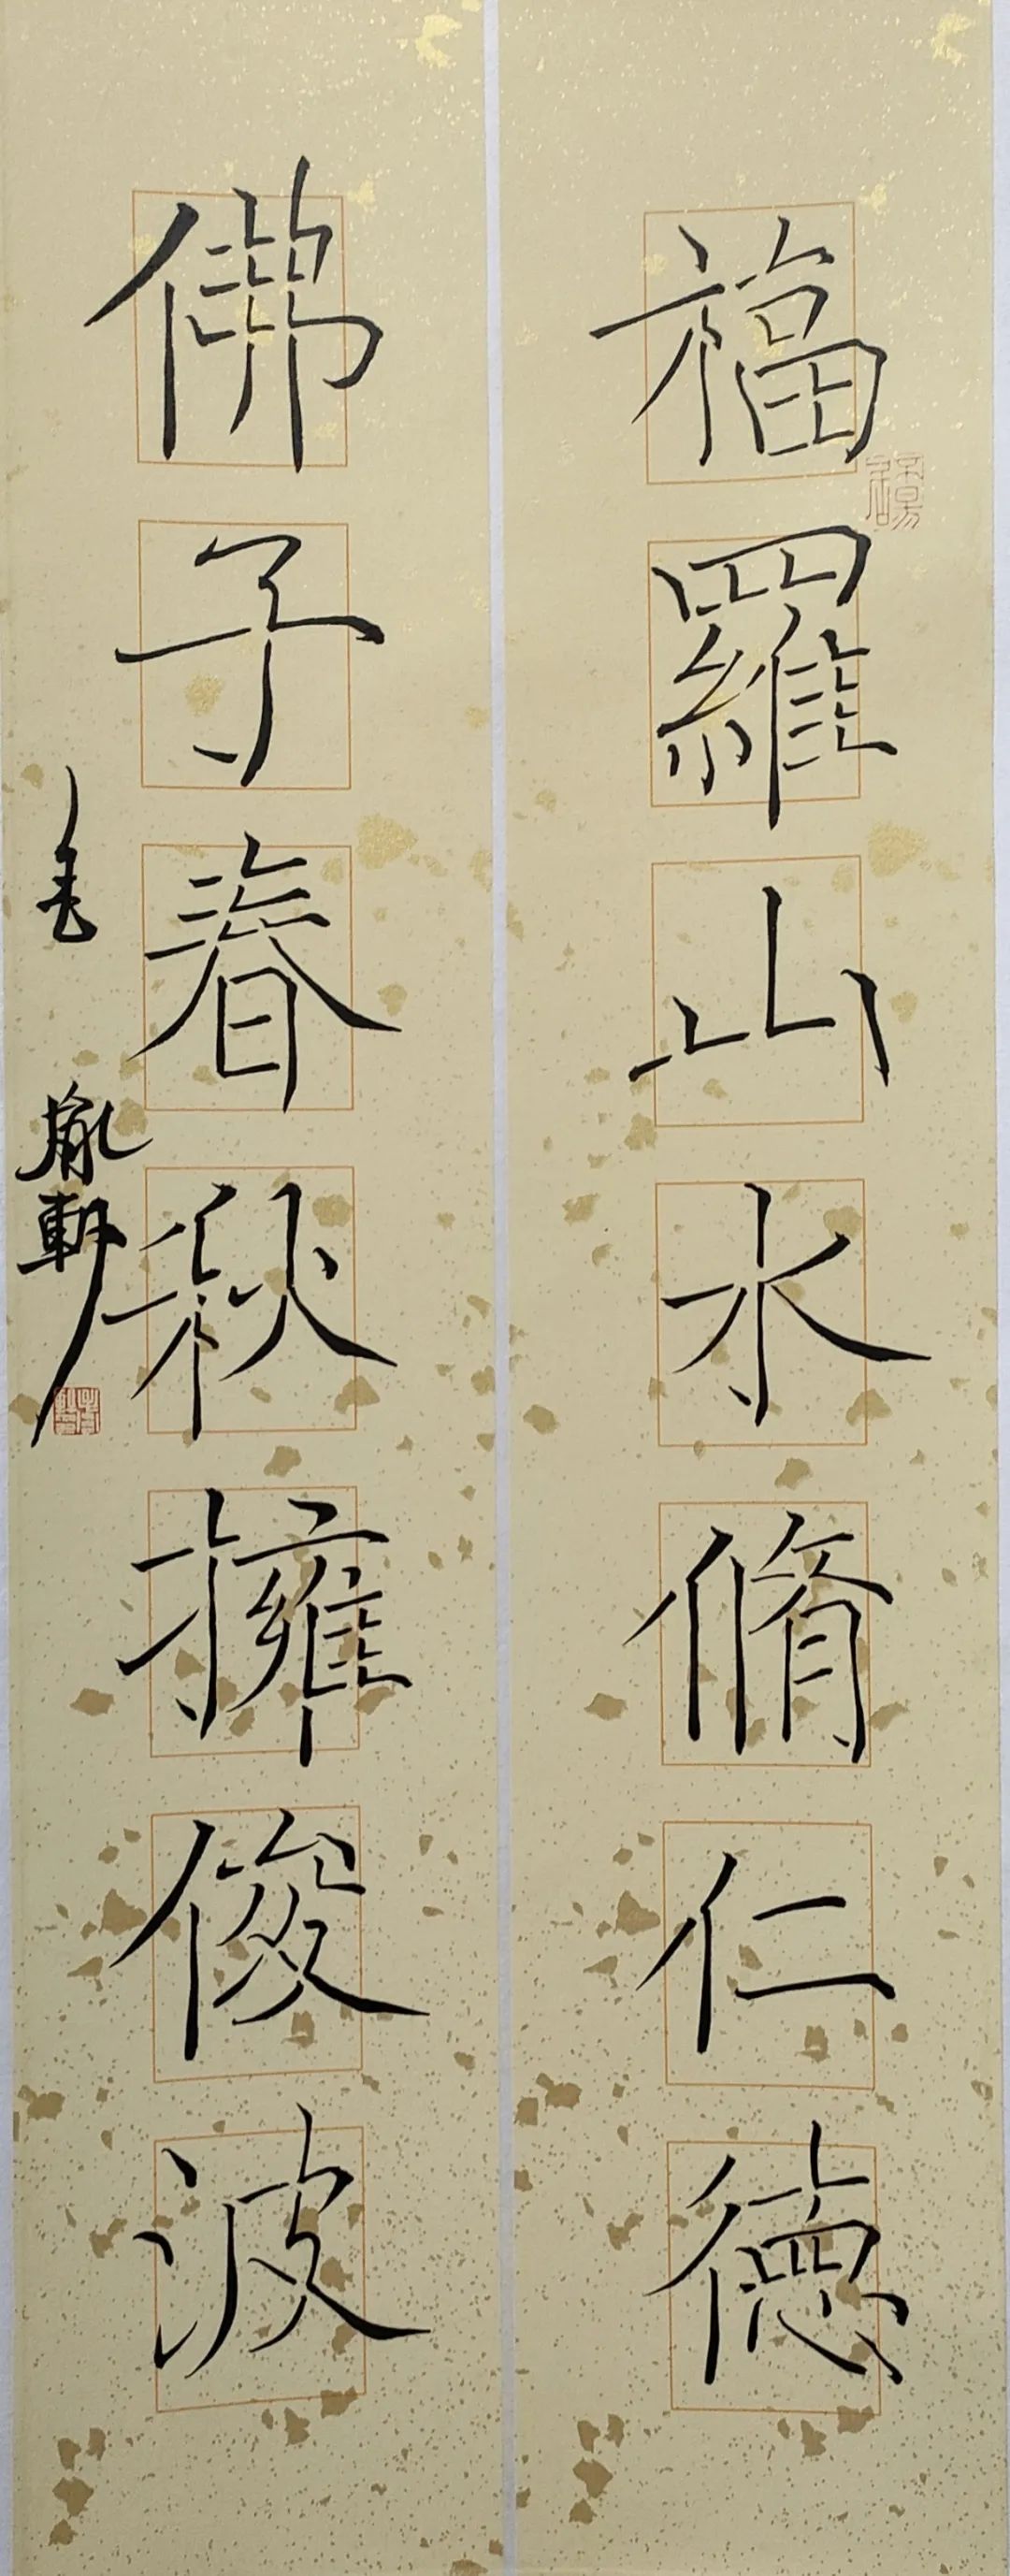 福羅山水脩仁德
佛子春秋擁俊波
胤軒